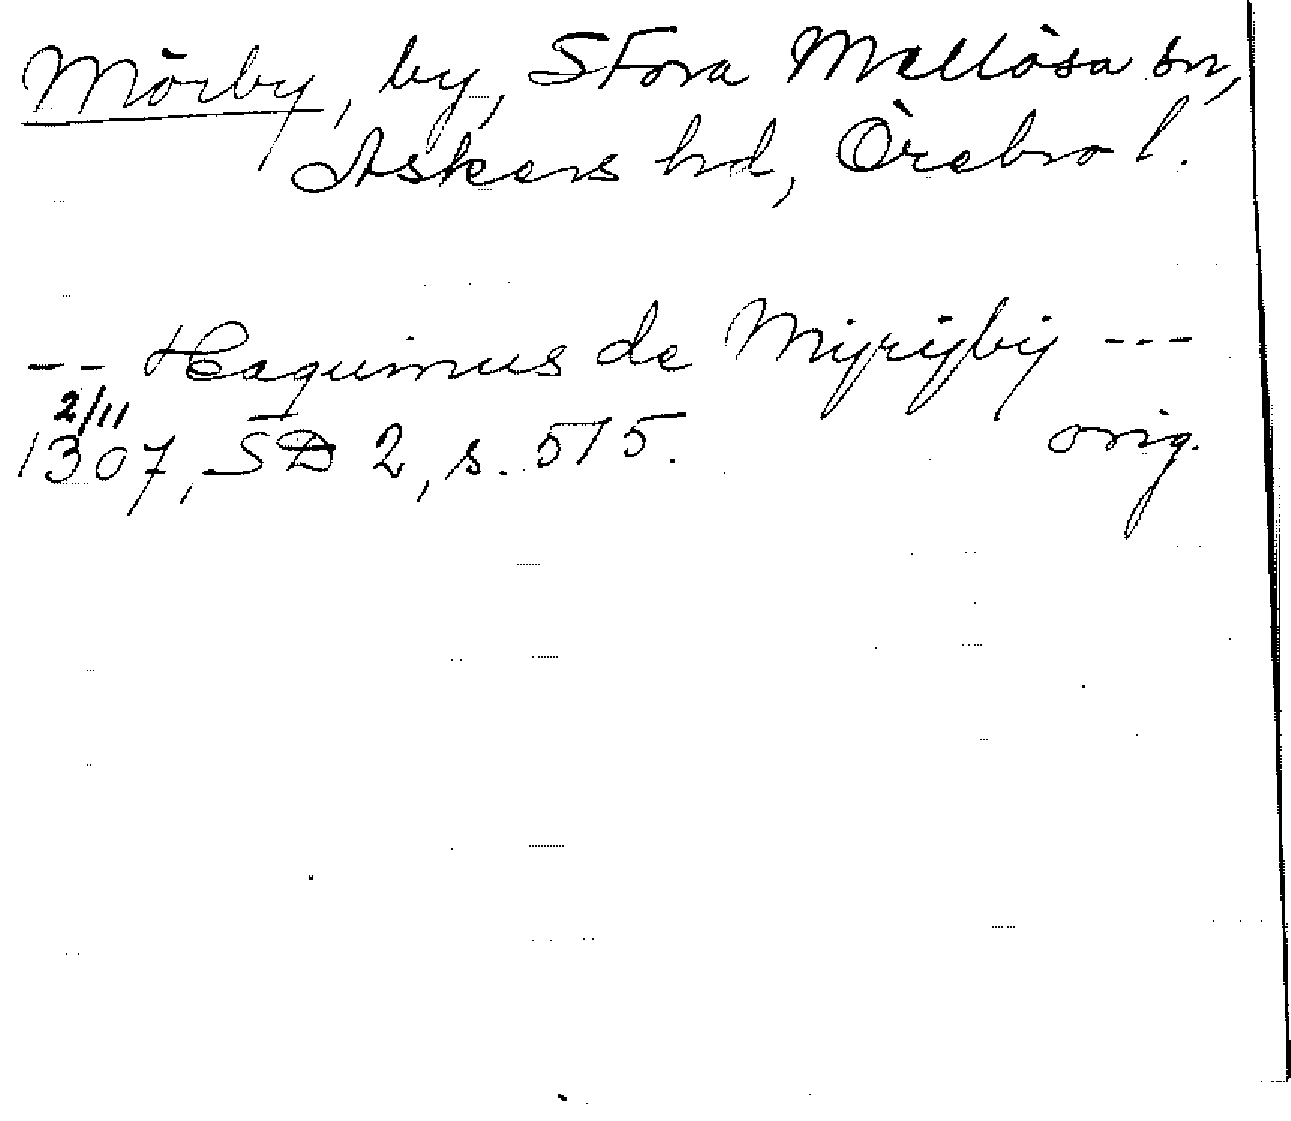 Mörby, by, Stora Mellösa sn,
Askers hd, Örebro l.
-- Haquinus de Mÿrÿby ---
2/11
1307, SD 2, s. 515. orig.